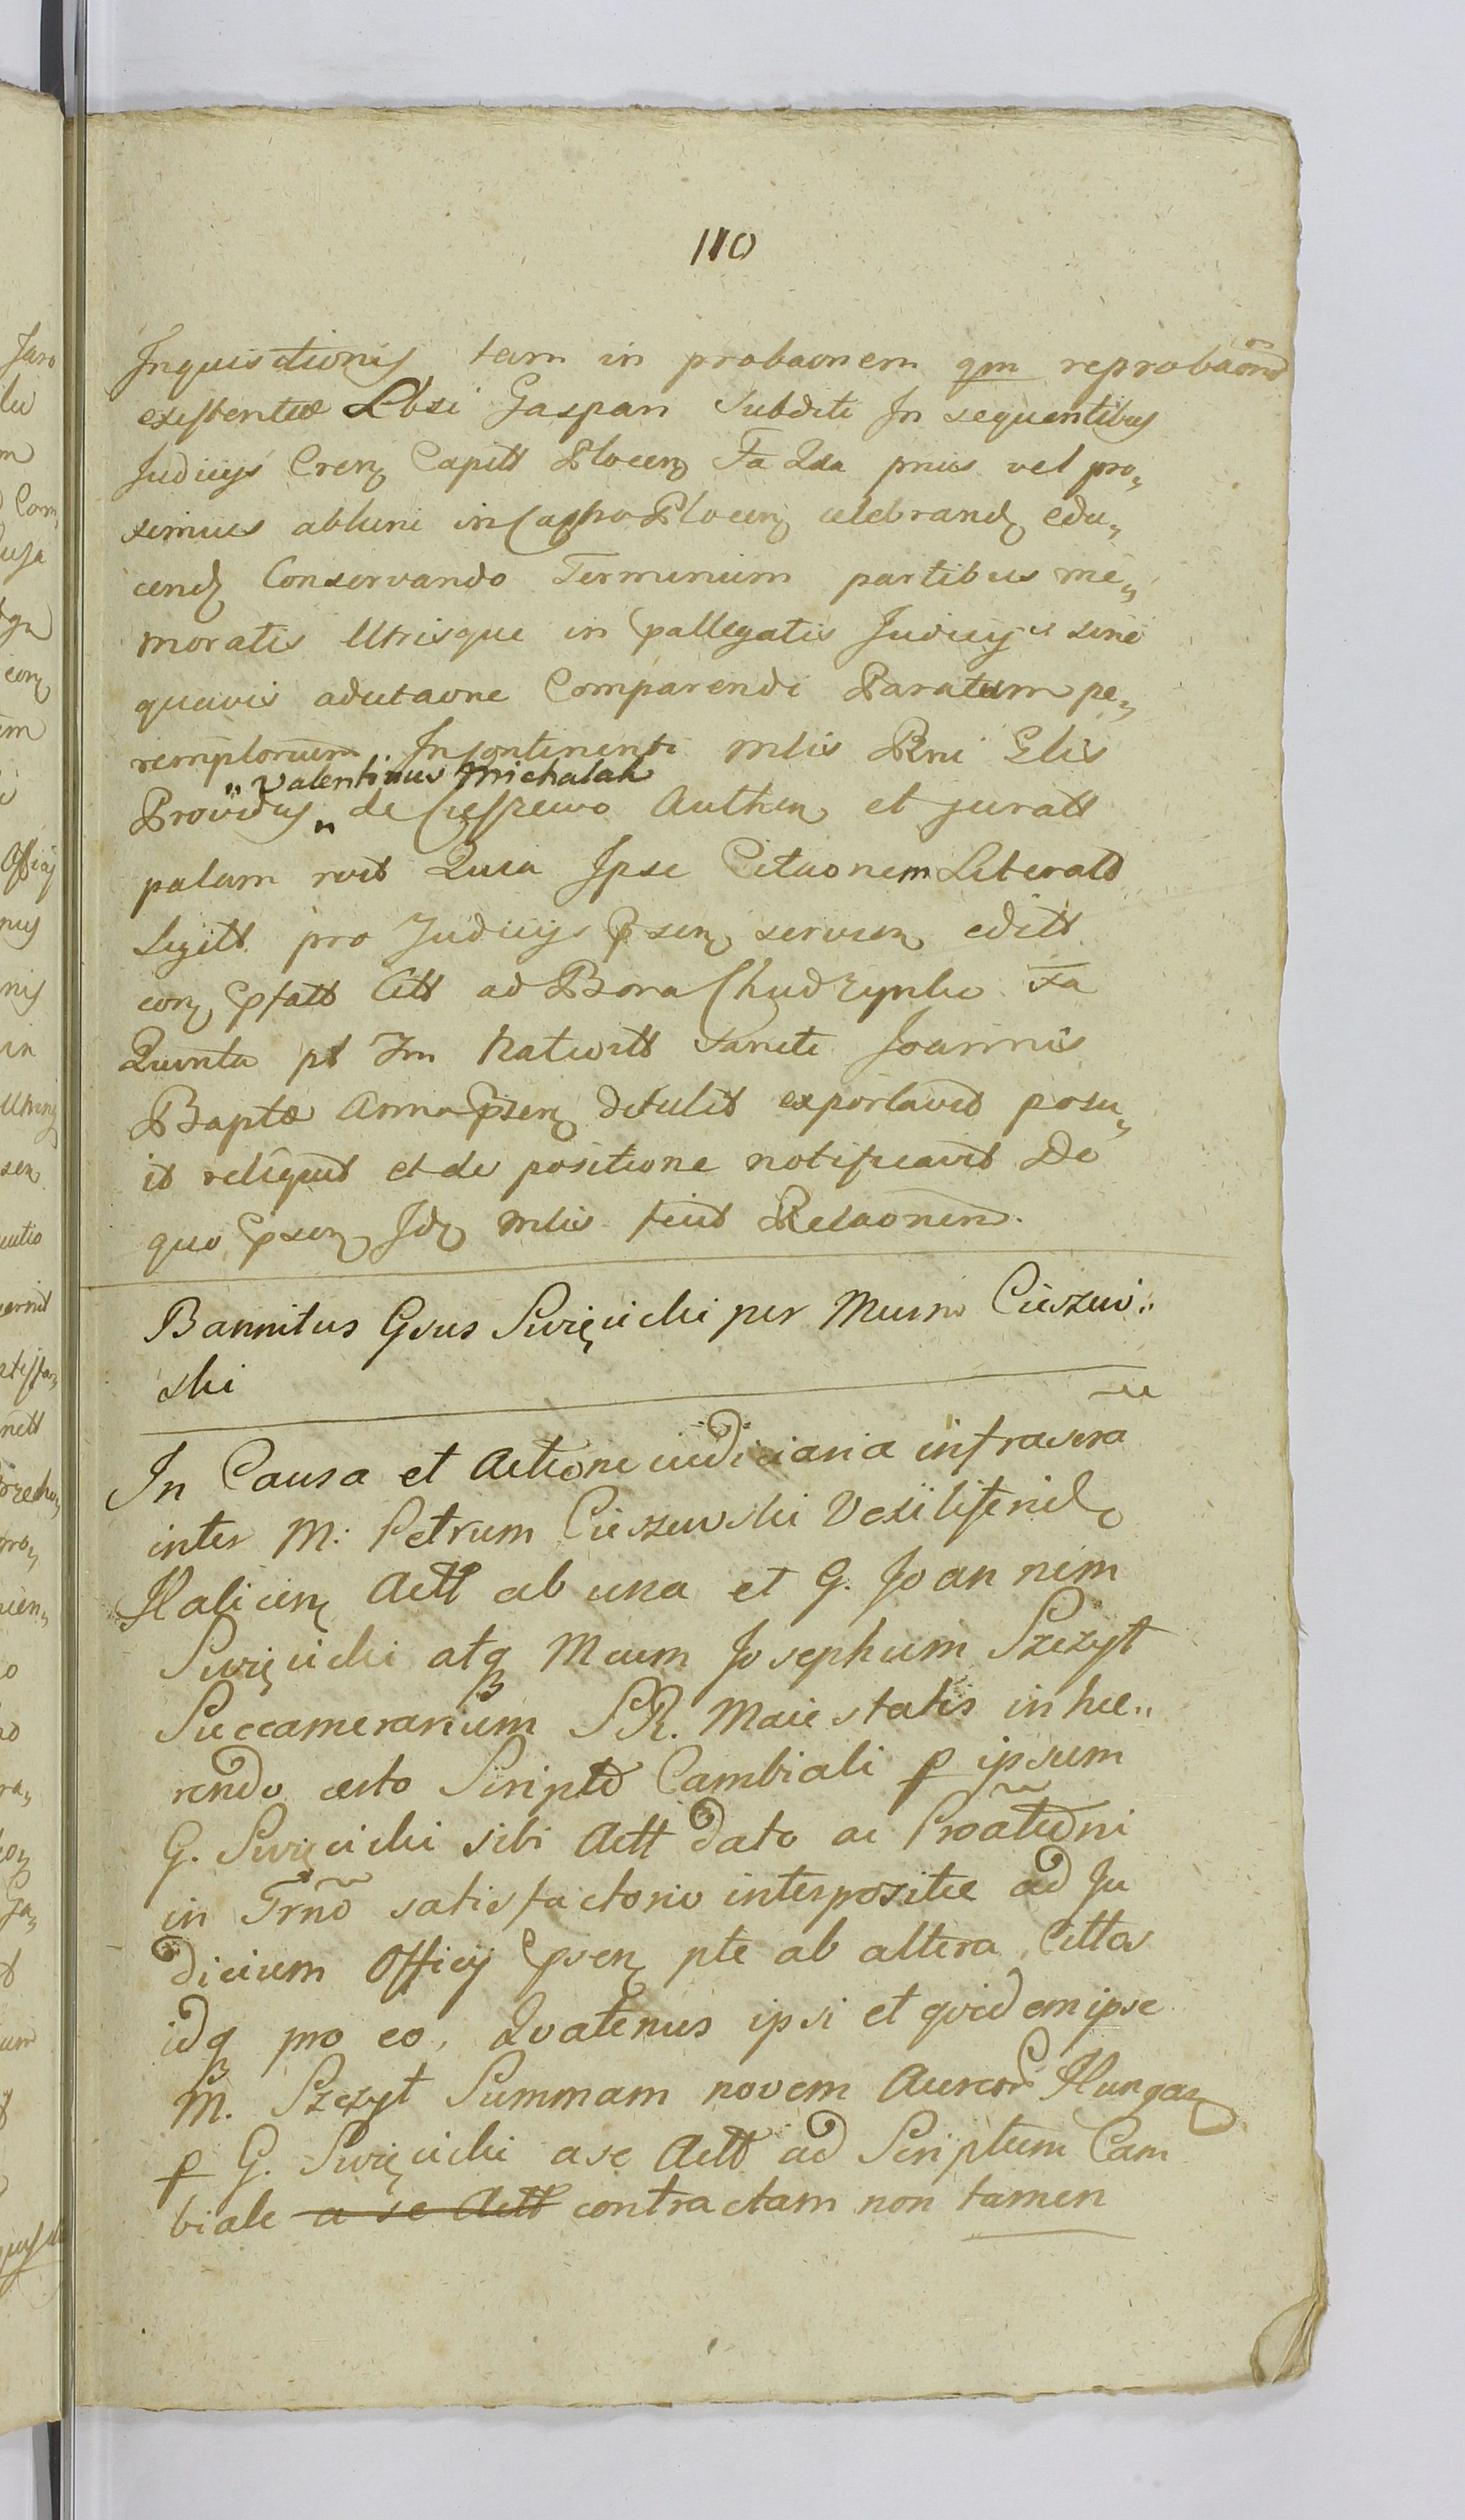 110
Inquisitionis tam in probaonem qm reprobaōnē
existentiæ Lbsi Gaspari Subditi In sequentibus
Judicijs Cren Capitt Plocen Fa 2da prius vel pro„
ximius abhinc in Castro Plocen celebrand edu„
cend Conservando Terminum partibus me„
moratis Utrisque in pallegatis Judicijs sine
quavis aducitaone Comparendi Paratum pe„
remptorium. Incontinenti Mlis Rni Glis
„Valentinus Michalak
Providus„ de Cieszewo Authen et juratt
palam rvit Quia Ipse Citaonem Literald
Legitt pro Judicijs Psen servien editt
eorz Pfatt Citt ad Bona Chudzynko Fa
Quinta pt Fm Nativitt Sancti Joannis
Baptæ Anno Psen detulit exportavit posu„
it reliquit et de positione notificavit De
quo Psen Idz Mlis fecit Relaonem.
Bannitus Gsus Swięcicki per Meum Cieszew„
ski
In Causa et Actione iudiciaria infrascra
inter M: Petrum Cieszewski Vexiliferid
Halicien Actt ab una et G. Joannem
Swięcicki atq Mcum Josephum Szczyt
Succamerarium S R. Maiestatis inhæ„
rendo certo Scripto Cambiali p ipsum
G. Swięcicki sibi Actt dato ac Proātiōni
in Trnō satisfactorio interpositæ ad Ju
dicium Officij Psen pte ab altera Cittos
idq pro eo, Quatenus ipsi et qvidem ipse
M. Szczyt Summam novem Aureor Hungar
p G. Swięcicki a se Actt ad Scriptum Cam
biale a se Actt contractam non tamen